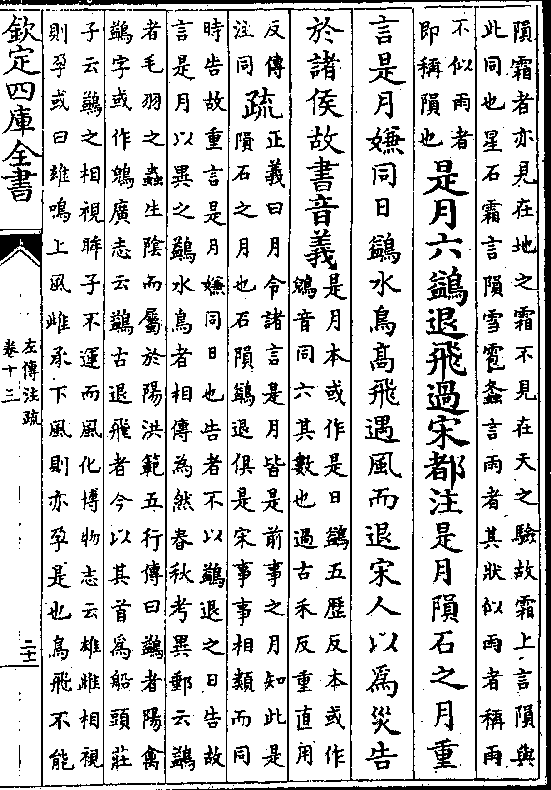 隕霜者亦見在地之霜不見在天之驗故霜上言隕與
此同也星石霜言隕雪雹螽言雨者其狀似雨者稱雨
不似雨者
即稱隕也
是月六鷁退飛過宋都注是月隕石之月重
言是月嫌同日鷁水鳥高飛遇風而退宋人以爲災告
於諸侯故書音義
是月本或作是日鷁五歴反本或作
鶂音同六其數也過古禾反重直用
反傳
注同
疏
正義曰月令諸言是月皆是前事之月知此是
隕石之月也石隕鷁退俱是宋事事相類而同
時告故重言是月嫌同日也告者不以鷁退之日告故
言是月以異之鷁水鳥者相傳為然春秋考異郵云鷁
者毛羽之蟲生陰而屬於陽洪範五行傳曰鷁者陽禽
鷁字或作鶂廣志云鷁古退飛者今以其首爲船頭莊
子云鷁之相視眸子不運而風化博物志云雄雌相視
則孕或曰雄鳴上風雌承下風則亦孕是也鳥飛不能
欽定四庫全書
左傳注疏
卷十三
二十二